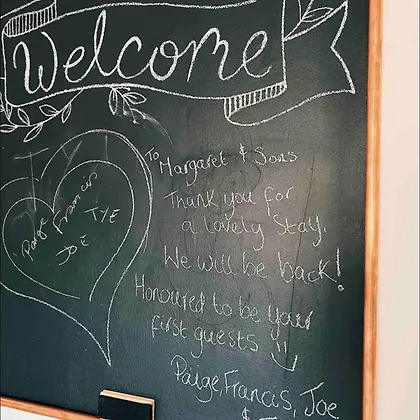 Welcome
To Margaret & Sons
Thank you for
a lovely Stay.
We will be back!
Honoured to be your
first guests
Paige, Francis, Joe
&
Paige Francis
JOE TYE